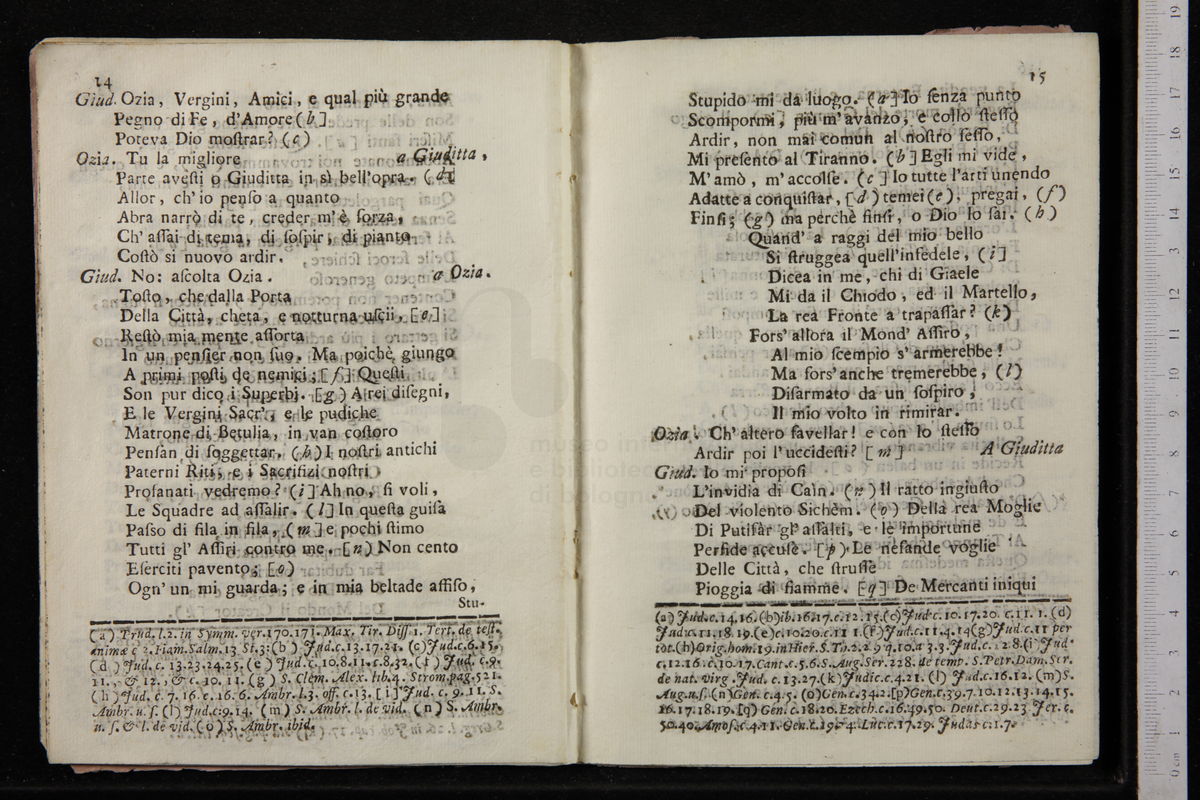 14
Giud. Ozia, Vergini, Amici, e qual più grande
Pegno di Fe, d'Amore (b]
Poteva Dio moſtrar? (c)
Ozia. Tu la migliore a Giuditta,
Parte aveſti o Giuditta in sì bell'opra. (d]
Allor, ch'io penſo a quanto
Abra narrò di te, creder m'è forza,
Ch' aſſai di tema, di ſoſpir, di pianto
Coſtò sì nuovo ardir.
Giud. No: aſcolta Ozia. a Ozia.
Toſto, che dalla Porta
Della Città, cheta, e notturna uſcii, [e]
Reſtò mia mente aſſorta
In un penſier non ſuo. Ma poichè giungo
A primi poſti de nemici; [f] Queſti
Son pur dico i Superbi. [g) A i rei diſegni,
E le Vergini Sacr', e le pudiche
Matrone di Betulia, in van coſtoro
Penſan di ſoggettar. (h) I noſtri antichi
Paterni Riti, e i Sacrifizi noſtri
Profanati vedremo? (i] Ah no, ſi voli,
Le Squadre ad aſſalir. (l] In queſta guiſa
Paſso di fila in fila, (m] e pochi ſtimo
Tutti gl' Aſſiri contro me. [n) Non cento
Eſerciti pavento; [o)
Ogn' un mi guarda; e in mia beltade affiſo,
Stu-
(a) Prud. l.2. in Symm. ver.170.171. Max. Tir. Diſſ.1. Tert. de teſt.
animæ c 2. Fiam. Salm.13 St.3: (b) Jud.c.13.17.21. (c) Jud.c.6.15.
(d) Jud. c. 13.23.24.25. (e) Jud.c.10.8.11.c.8.32. (f) Jud. c.9.
11., & 12., & c.10.11. (g) S. Clem. Alex. lib.4. Strom.pag.521.
(h) Jud. c. 7.16.c.16.6. Ambr. l.3. off. c.13. [i] Jud. c. 9.11. S.
Ambr. u. ſ. (l) Jud.c.9.14. (m) S. Ambr. l. de vid. (n) S. Ambr.
u. ſ. & l. de vid. (o) S. Ambr. ibid.
15
Stupido mi da luogo. (a] Io ſenza punto
Scompormi, più m'avanzo, e collo ſteſſo
Ardir, non mai comun al noſtro ſeſſo,
Mi preſento al Tiranno. (b] Egli mi vide,
M'amò, m'accolſe. (c] Io tutte l'arti unendo
Adatte a conquiſtar, [d) temei (e), pregai, (f)
Finſi; (g) ma perchè finſi, o Dio lo ſai. (h)
Quand' a raggi del mio bello
Si ſtruggea quell'infedele, (i]
Dicea in me, chi di Giaele
Mi da il Chiodo, ed il Martello,
La rea Fronte a trapaſſar? (k)
Fors' allora il Mond' Aſſiro,
Al mio ſcempio s'armerebbe!
Ma fors' anche tremerebbe, (l)
Diſarmato da un ſoſpiro,
Il mio volto in rimirar.
Ozia. Ch'altero favellar! e con lo ſteſſo
Ardir poi l'uccideſti? [m] A Giuditta
Giud. Io mi propoſi
L'invidia di Caìn. (n) Il ratto ingiuſto
Del violento Sichèm. (o) Della rea Moglie
Di Putifàr gl' aſſalti, e le importune
Perfide accuſe. [p) Le nefande voglie
Delle Città, che ſtruſſe
Pioggia di fiamme. [q] De Mercanti iniqui
(a) Jud.c.14.16. (b) ib.16.17.c.12.15. (c) Jud.c.10.17.20.c.11.1. (d)
Jud.c.11.18.19. (e) c.10.20.c.11 1. (f) Jud.c.11.4.14 (g) Jud.c.11 per
tot. (h) Orig.hom.19.in Hier. S.Th.2.2.q.10.a 3.3. Jud.c.12.8. (i) Jud
c.12.16.c.10.17. Cant.c.5.6.S.Aug.Ser.228. de temp. S.Petr.Dam.Ser.
de nat. virg. Jud. c.13.27. (k) Judic.c.4.21. (l) Jud.c.16.12. (m) S.
Aug.u.ſ. (n) Gen. c.4.5. (o) Gen.c.34.2. [p) Gen.c.39.7.10.12.13.14.15.
16.17.18.19. [q) Gen.c.18.20. Ezech.c.16.49.50. Deut.c.29.23 Jer. c.
50.40. Amoſ.c.4.11. Gen.c.19.4. Luc.c.17.29. Judas c.1.7.